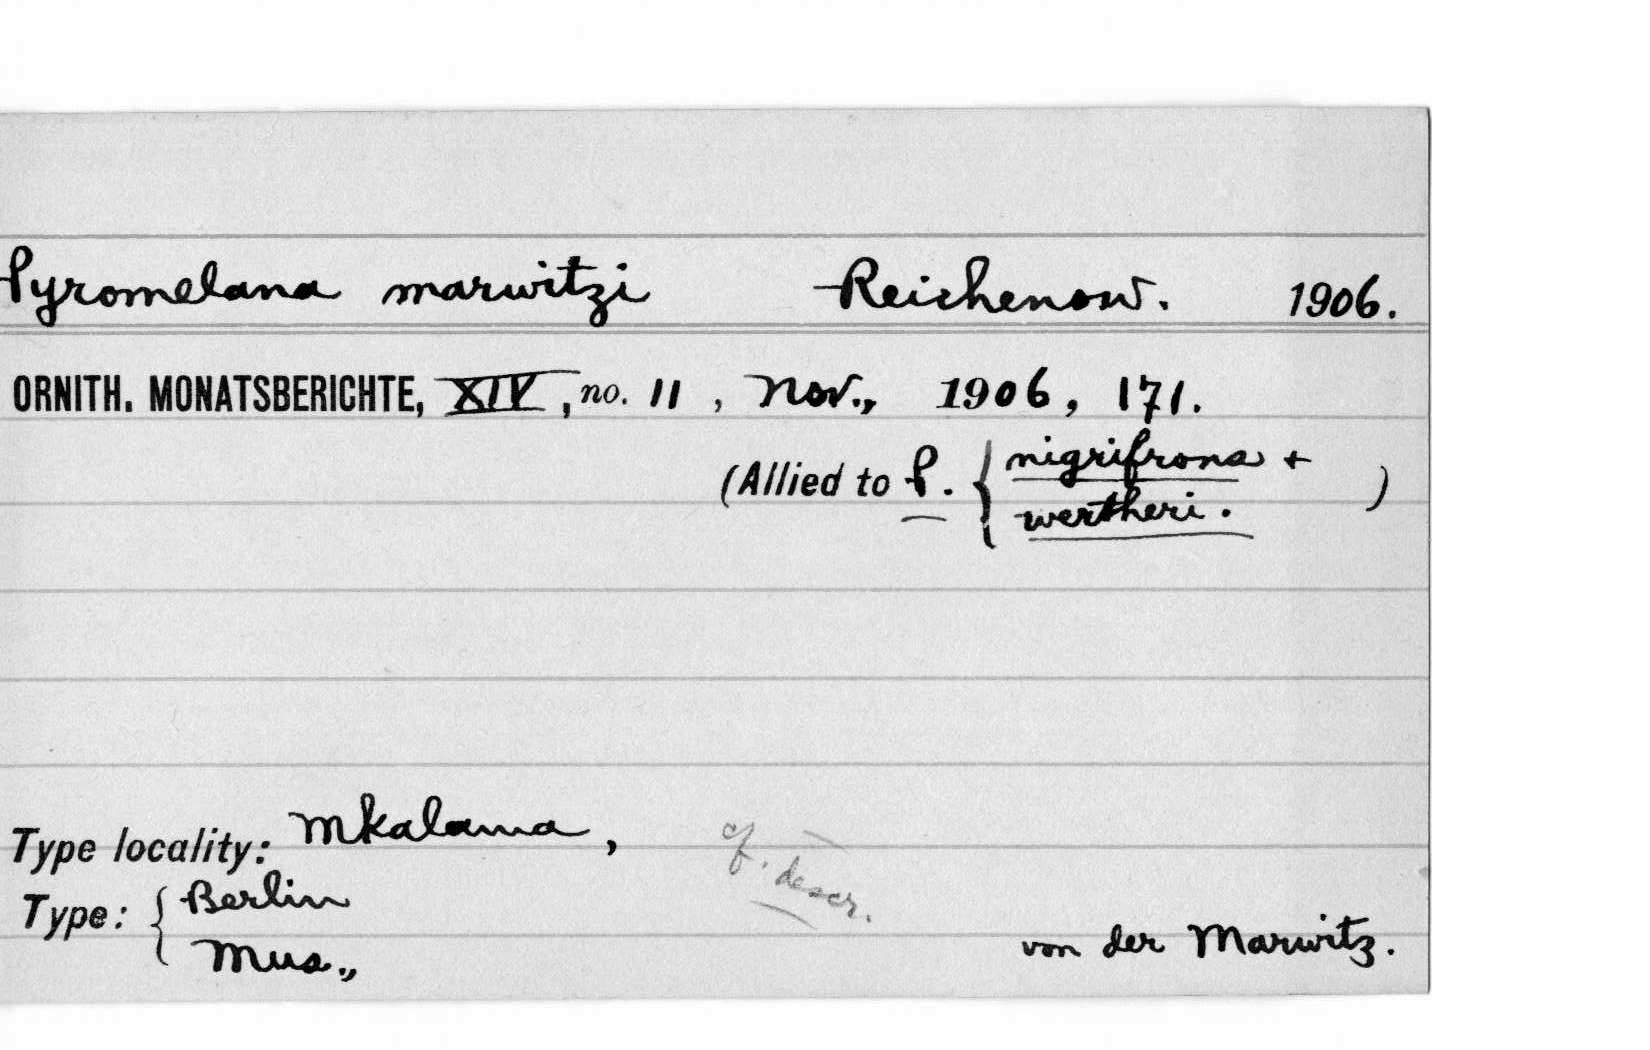 Pyromelana marwitzi Reichenow. 1906.
ORNITH. MONATSBERICHTE, XIV, no. 11, Nov., 1906, 171.
(Allied to P. { nigrifrons +
wertheri. )
Type locality: Mkalama,
cf. descr.
Type: { Berlin
Mus.,
von der Marwitz.